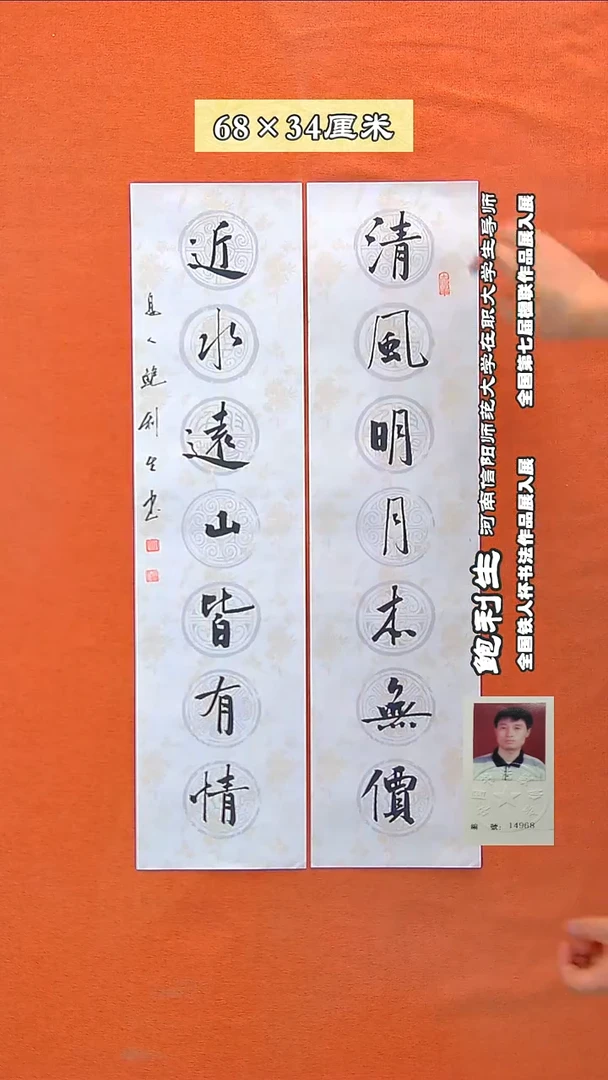 68×34厘米
清風明月本無價
近水遠山皆有情
鲍利生
河南信阳师范大学在职大学生导师
全国第七届楹联作品展入展
全国铁人杯书法作品展入展
編號：14968